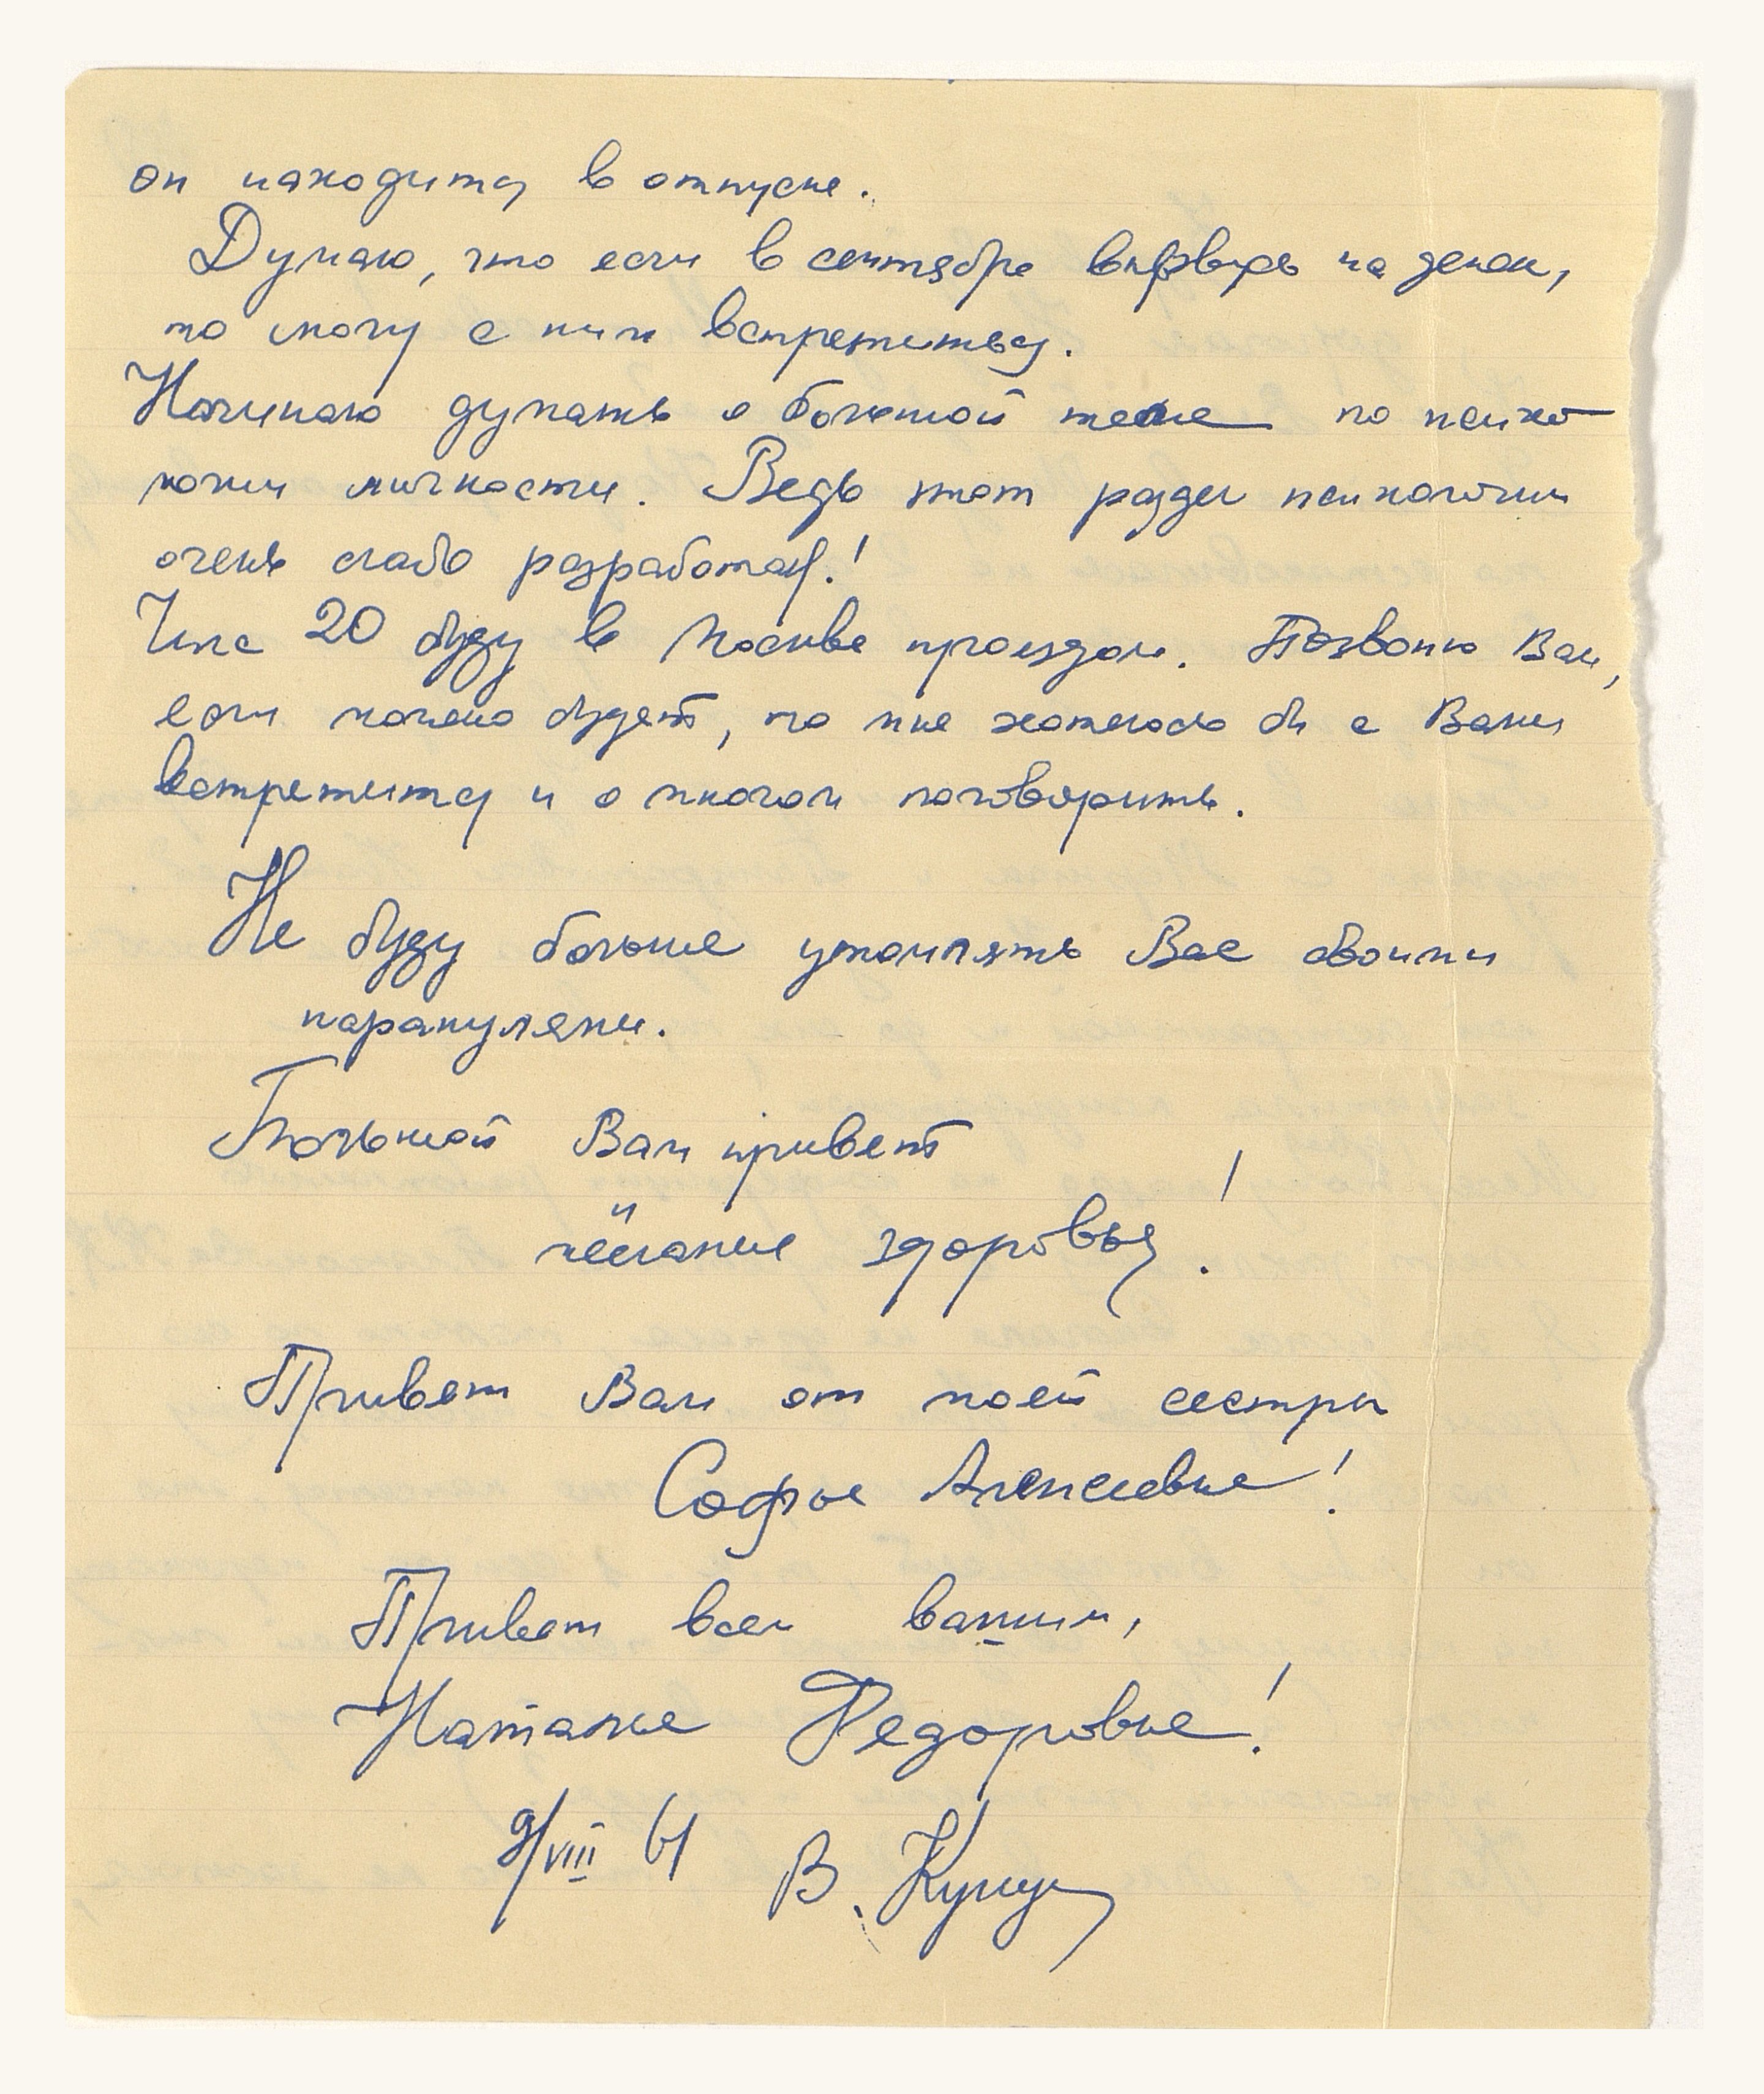 он находится в отпуске.
Думаю, что если в сентябре вырвусь на денек,
то смогу с ним встретиться.
Начинаю думать о большой теме по психо-
логии личности. Ведь этот раздел психологии
очень слабо разработан!
Числа 20 буду в Москве проездом. Позвоню Вам,
если можно будет, то мне хотелось бы с Вами
встретится и о многом поговорить.
Не буду больше утомлять Вас своими
каракулями.
Большой Вам привет
и
желание здоровья!
Привет Вам от моей сестры
Софье Алексеевне!
Привет всем вашим,
Наталье Федоровне!
9/VIII 61 В.